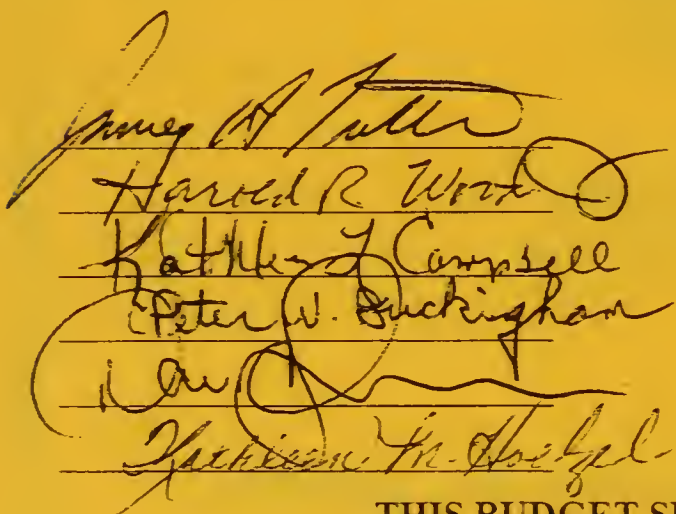 James A Tuttle
Harold R Wood
Kathleen L Campbell
Peter W. Buckingham
Kathleen M. Hoelzel
THIS BUDGET S